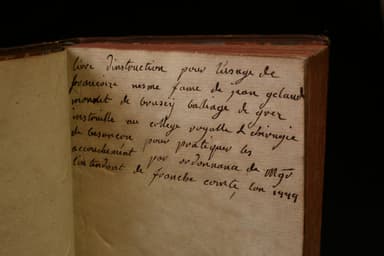 livre d'instruction pour l'usage de
francoise nesme fame de jean gelaud
de ballage de
instruitte au college royalle d'chirugie
de besancon pour pratiquer les
accouchement par ordonnance de Mgr
l'intendant de franche comté, lan